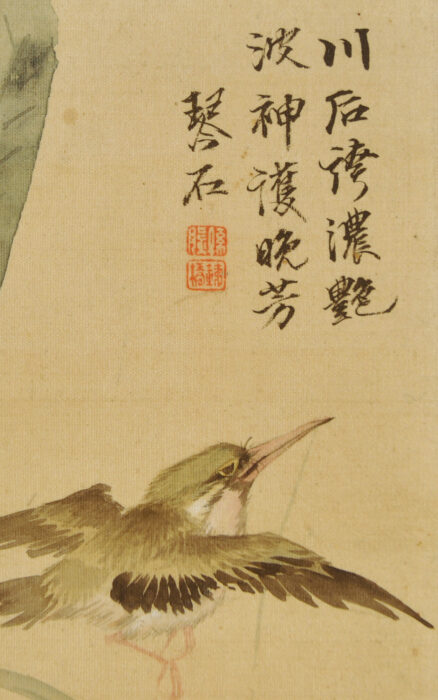 川后誇濃艷
波神護晚芳
琴石